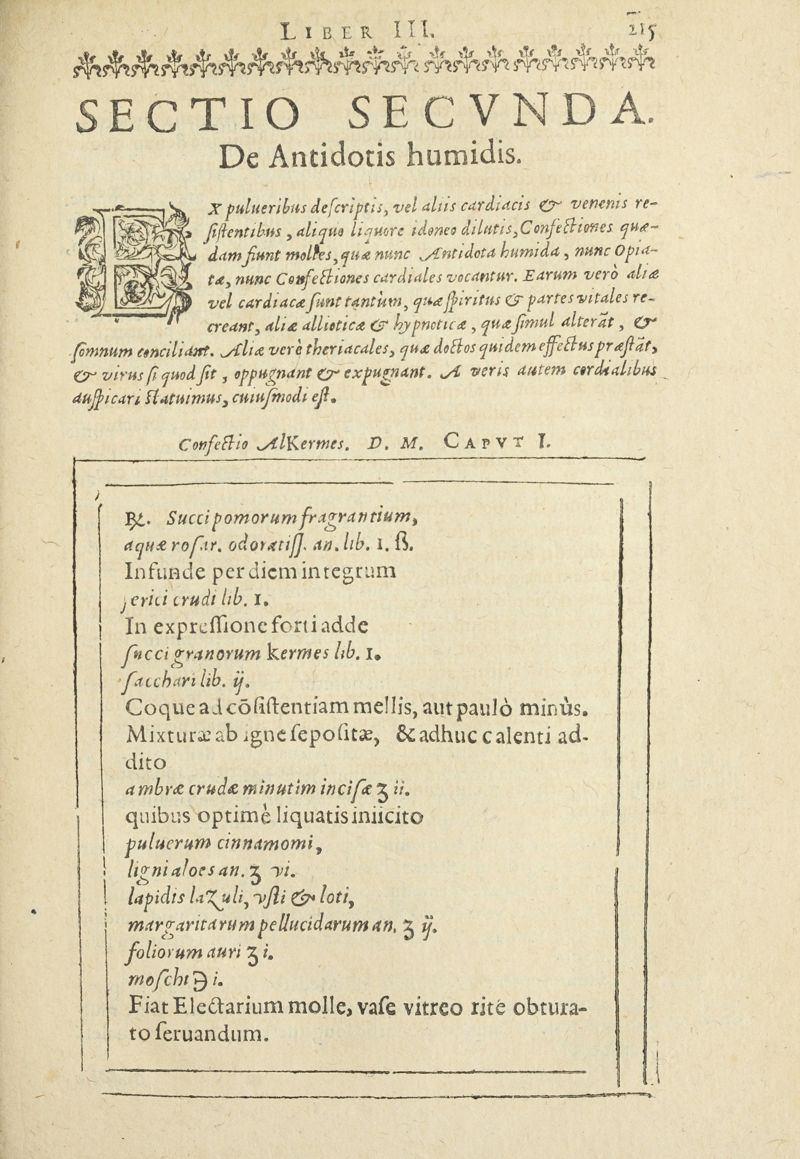 LIBER III. 215
SECTIO SECVNDA.
De Antidotis humidis.
EX pulueribus deſcriptis, vel aliis cardiacis & venenis re-
ſiſtentibus, aliquo liquore idoneo dilutis, Confectiones quæ-
dam fiunt molles, quæ nunc Antidota humida, nunc Opia-
tæ, nunc Confectiones cardiales vocantur. Earum verò aliæ
vel cardiacæ ſunt tantùm, quæ ſpiritus & partes vitales re-
creant, aliæ alliotica & hypnoticæ, quæ ſimul alterāt, &
ſomnum conciliant. Aliæ verè theriacales, quæ doctos quidem effectus præſtāt,
& virus ſi quod ſit, oppugnant & expugnant. A veris autem cordialibus
auſpicari ſtatuimus, cuiuſmodi eſt.
Confectio AlKermes. D. M. CAPVT I.
℞. Succi pomorum fragrantium,
aquæ roſar. odoratiſſ. an. lib. 1. ß.
Infunde per diem integrum
ſerici crudi lib. 1.
In expreſſione forti adde
ſucci granorum kermes lib. 1.
ſacchari lib. ij.
Coque ad cōſiſtentiam mellis, aut paulò minùs.
Mixturæ ab igne ſepoſitæ, & adhuc calenti ad-
dito
ambræ crudæ minutim inciſæ ʒ ii.
quibus optimè liquatis iniicito
puluerum cinnamomi,
ligni aloes an. ʒ vi.
lapidis lazuli, vſti & loti,
margaritarum pellucidarum an. ʒ ij.
foliorum auri ʒ i.
moſchi ℈ i.
Fiat Electarium molle, vaſe vitreo ritè obtura-
to ſeruandum.